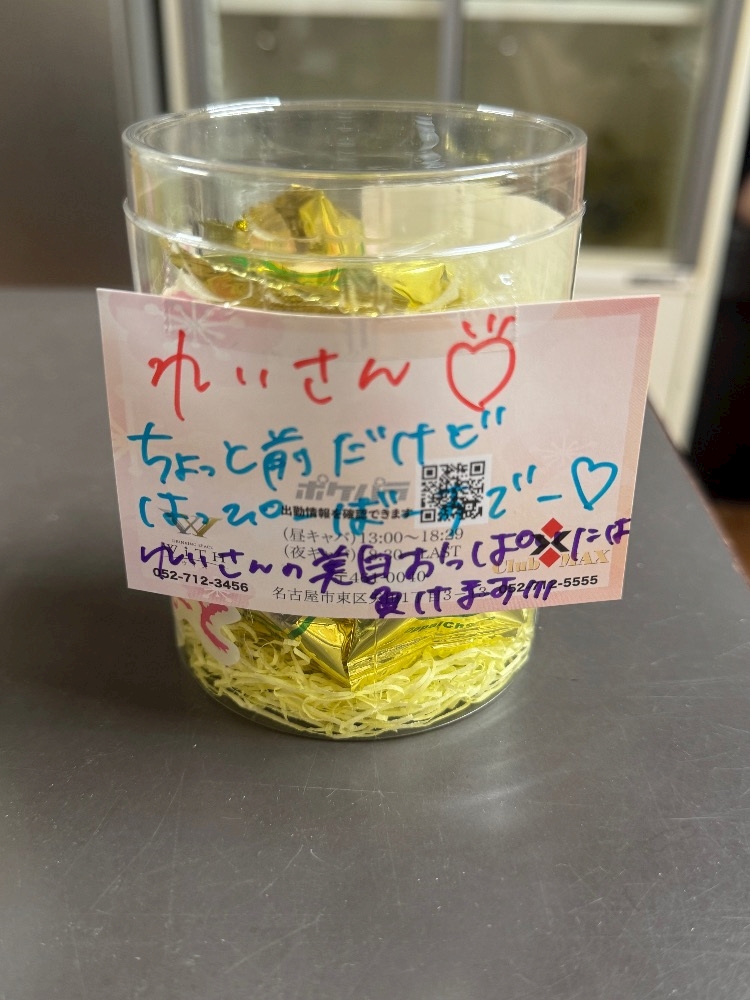 れいさん♡
ちょっと前だけど
はっぴーばーすでー♡
れいさんの美白おっぱいには
負けます!!!
ポケパラ
出勤情報を確認できます
(昼キャバ)13:00〜18:29
LAST
WITH
Club MAX
052-712-3456
052-712-5555
名古屋市東区